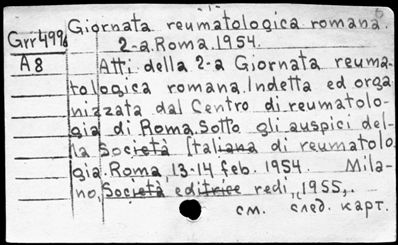 Giornata reumatologica romana.
Grr4996
2-a. Roma. 1954.
A8
Atti della 2-a Giornata reuma-
tologica romana. Indetta ed orga
nizzata dal Centro di reumatolo-
gia di Roma. Sotto gli auspici del-
la Società Italiana di reumatolo
gia. Roma, 13-14 feb. 1954. Mila-
no, Società editrice redi, 1955,.
см. след. карт.